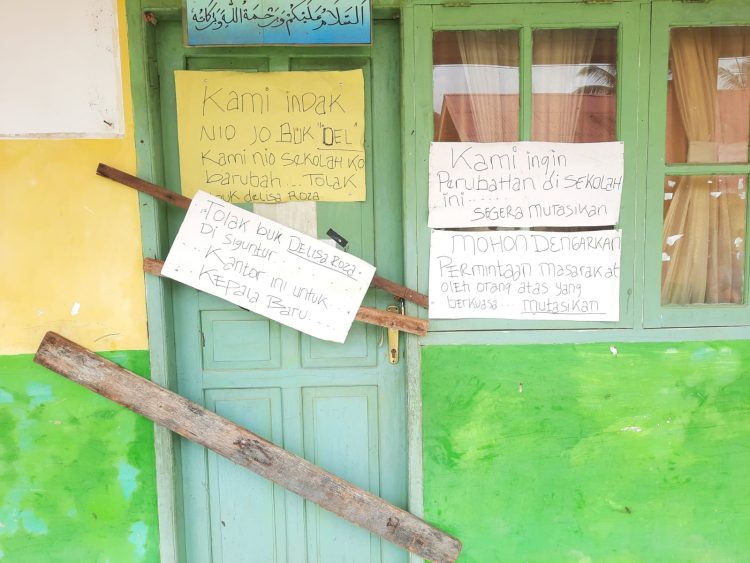 السلام عليكم ورحمة الله وبركاته
Kami indak
NIO JO BUK "DEL"
Kami nio SEKOLAH KO
barubah ... TOLAK
buk delisa Roza
Tolak buk Delisa Roza
Di Siguntur
... Kantor ini untuk
Kepala Baru...
Kami ingin
Perubahan di SEKOLAH
ini .......
SEGERA MUTASIKAN
MOHON DENGARKAN
PERMINTAAN masarakat
oleh orang atas yang
berkuasa .... MUTASIKAN